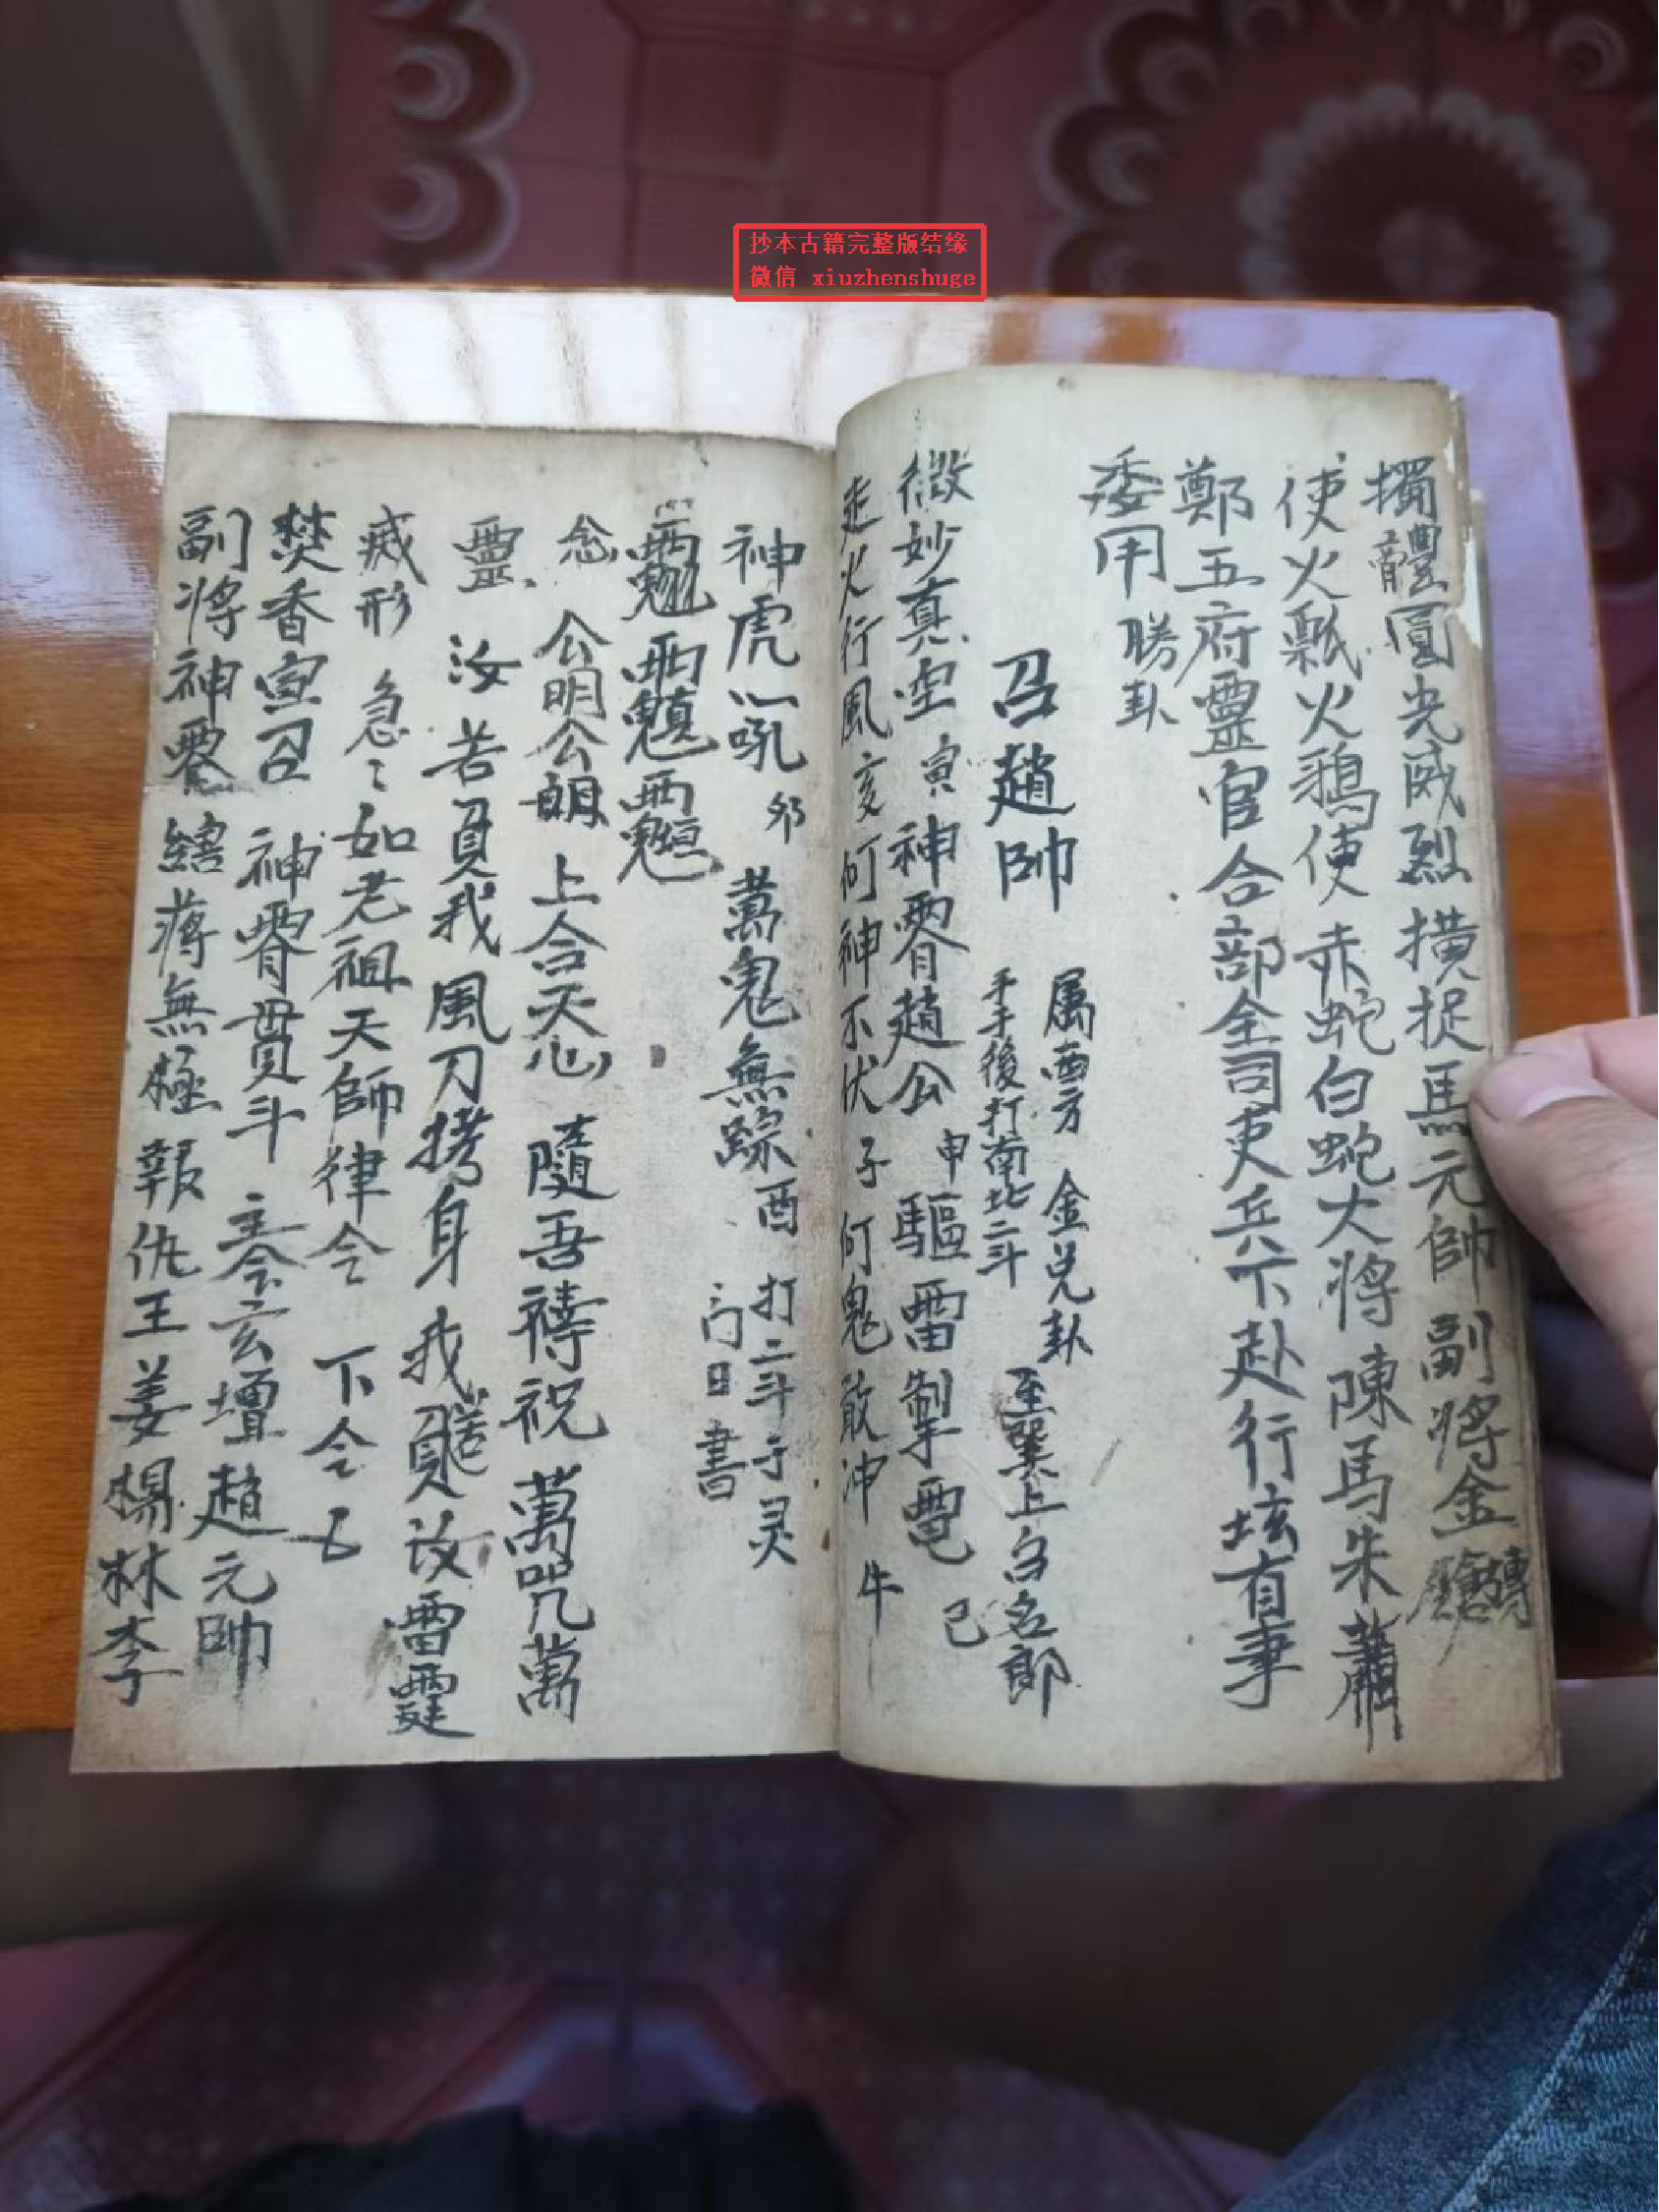 抄本古籍完整版结缘
微信 xiuzhenshuge
圓光威烈橫捉馬元帥副将金
使火瓢火鴉使赤蛇白蛇大将陳馬朱蕭
鄭五府靈官合部全司吏兵下赴行坛有事
委用 勝卦
召趙帥 属西方 金兑卦
手于後打南北二斗 至巽上白名郎
微妙真空 寅 神霄趙公 申 驅雷掣電 己
走火行風 亥 何神不伏 子 何鬼敢冲 牛
神虎一吼 夘 萬鬼無踪 酉 打二斗于灵
日書
念 公明公明 上合天心 隨吾禱祝 萬咒萬
靈 汝若負我 風刀拷身 我若負汝 雷霆
威形 急々如老祖天師律令 下令
焚香宣召 神霄貫斗 玄壇趙元帥
副将神霄 蔣無極 報仇王姜楊林李